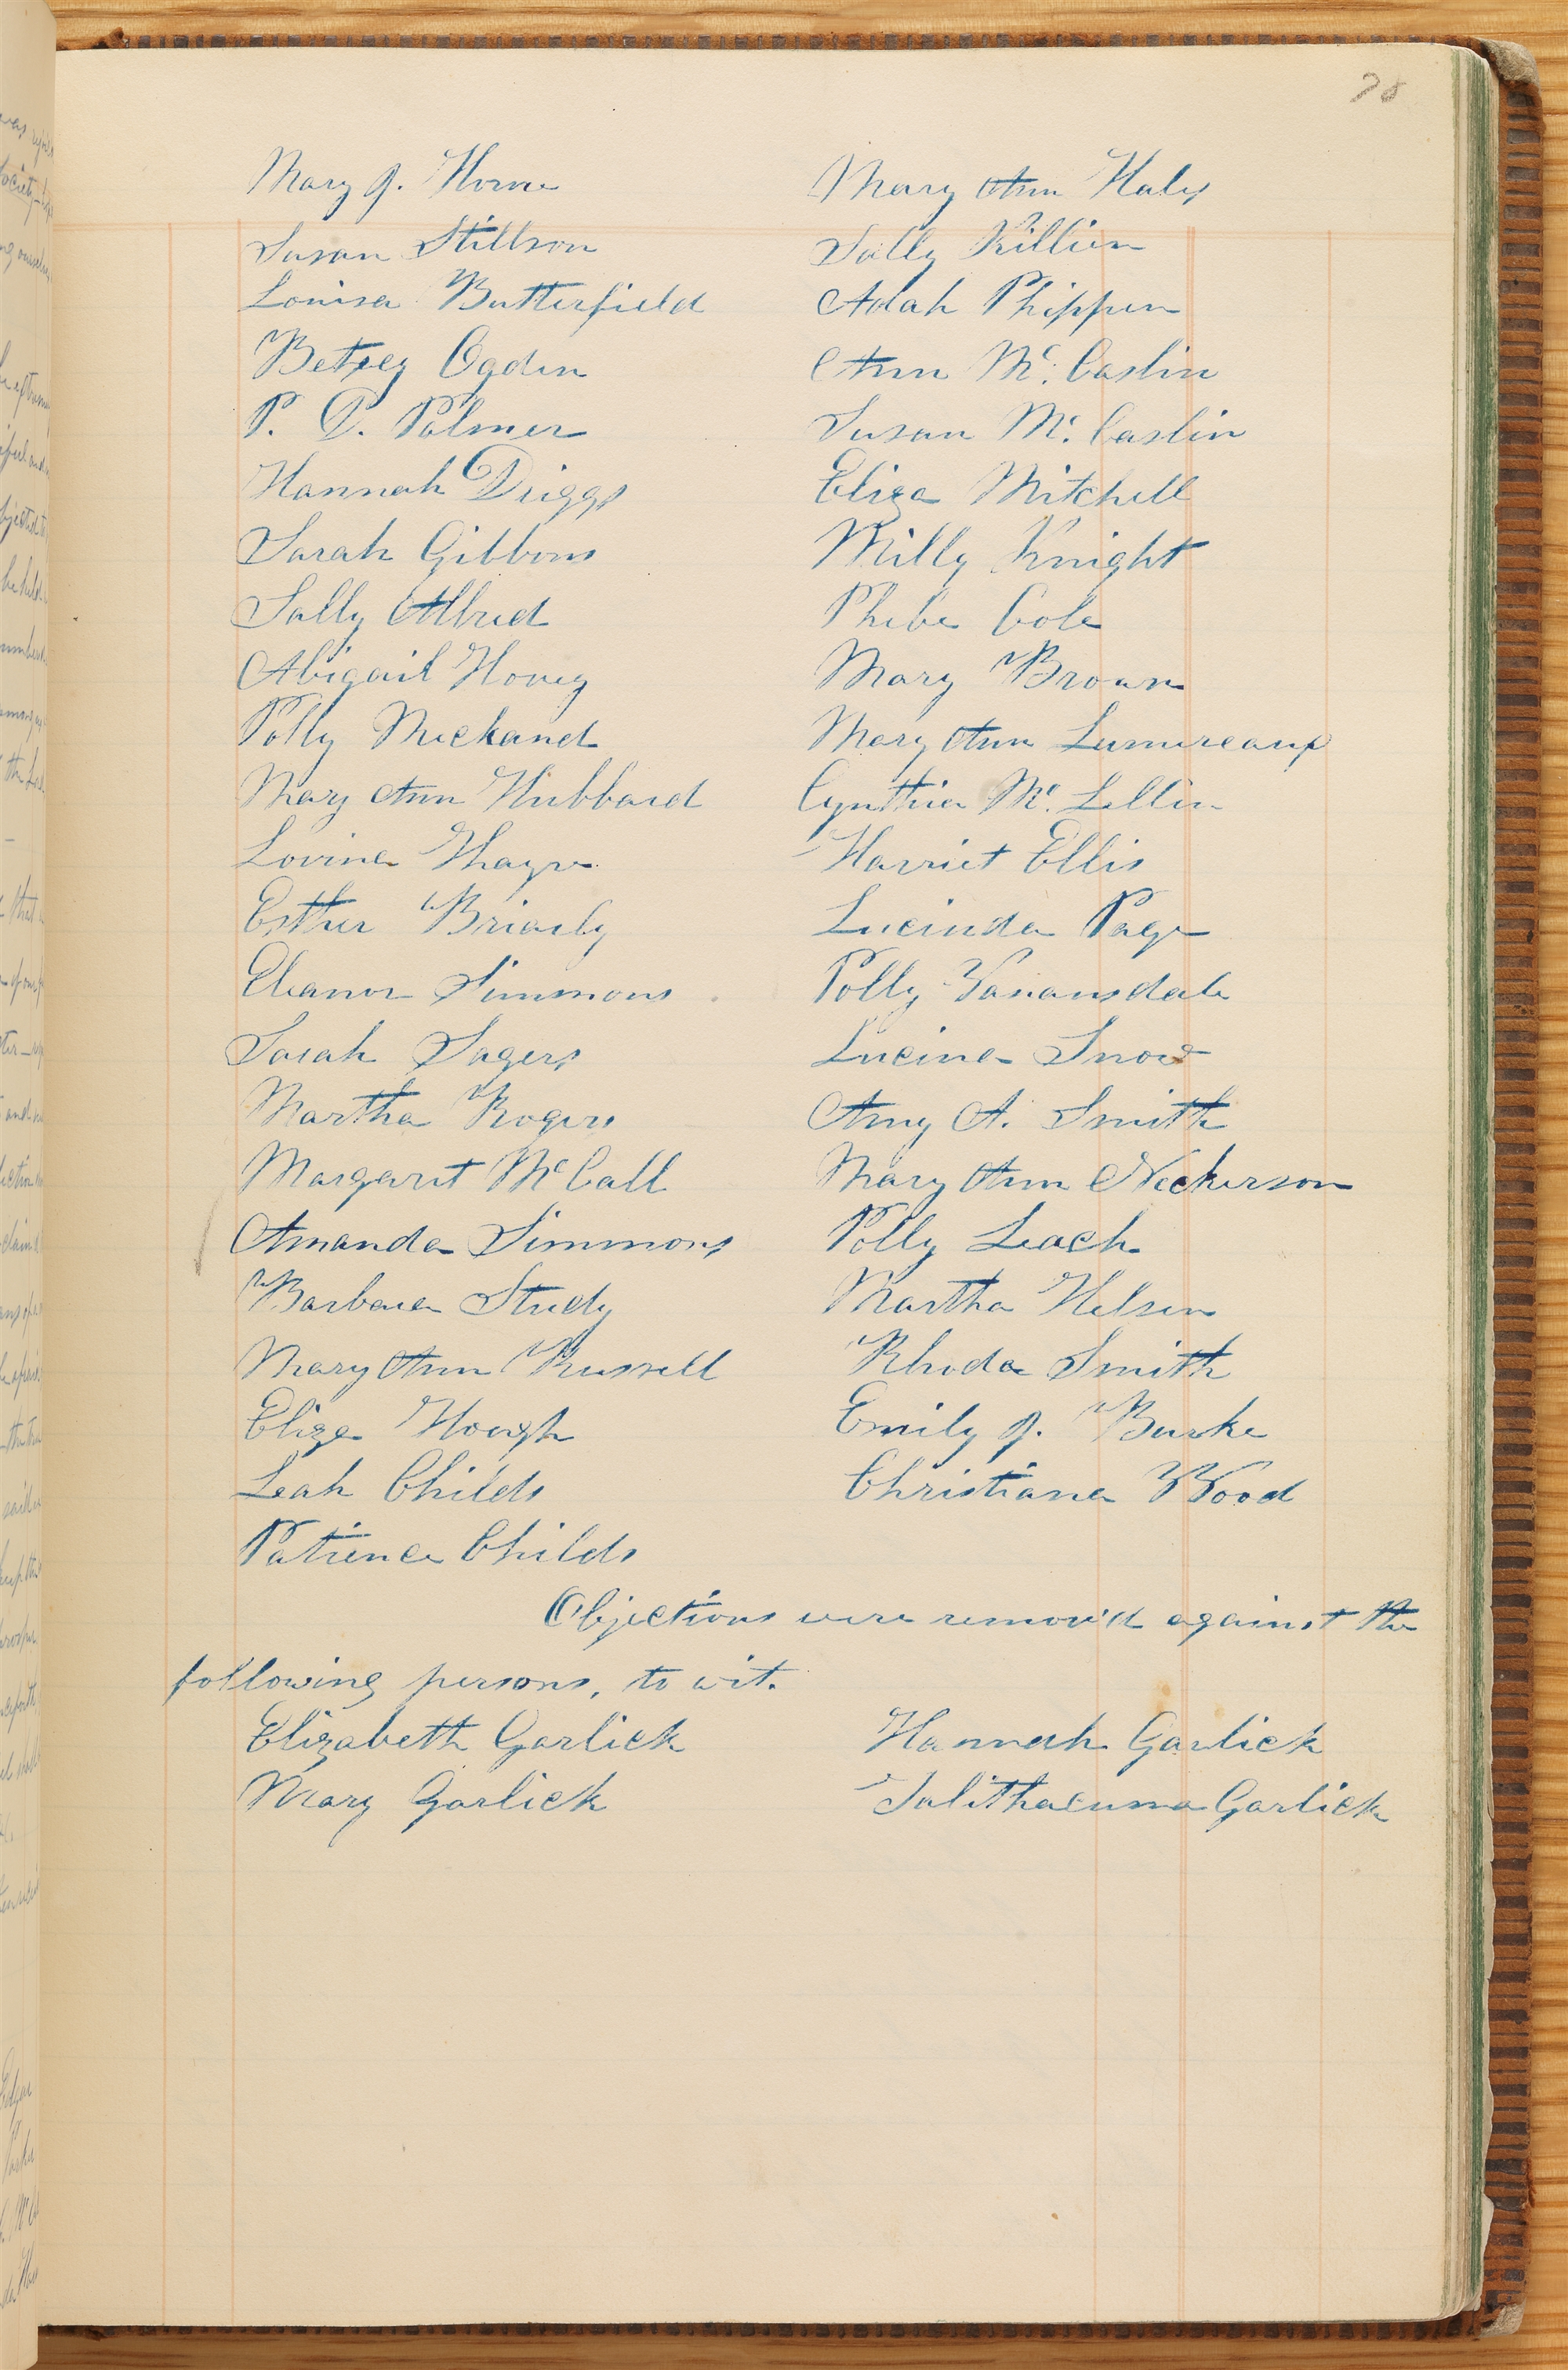 78
Mary J. Horne Mary Ann Haley
Susan Stillson Sally Killien
Louisa Butterfield Adah Phippen
Betsey Ogden Ann Mc. Caslin
P. D. Palmer Susan Mc. Caslin
Hannah Driggs Eliza Mitchell
Sarah Gibbons Milly Knight
Sally Allred Phebe Cole
Abigail Hovey Mary Brown
Polly Mary Ann Lumereaux
Mary Ann Hubbard Cynthia Mc. Lellin
Lovina Thayre Harriet Ellis
Esther Briarly Lucinda Page
Eleanor Simmons Polly Vanansdale
Sarah Sagers Lucina Snow
Martha Rogers Amy A. Smith
Margaret McCall Mary Ann Neckerson
Amanda Simmons Polly Leach
Barbara Study Martha Helsen
Mary Ann Russell Rhoda Smith
Eliza Hough Emily J. Burke
Leah Childs Christiana Wood
Patience Childs
Objections were remov'd against the
following persons, to wit.
Elizabeth Garlick Hannah Garlick
Mary Garlick Talithacuma Garlick